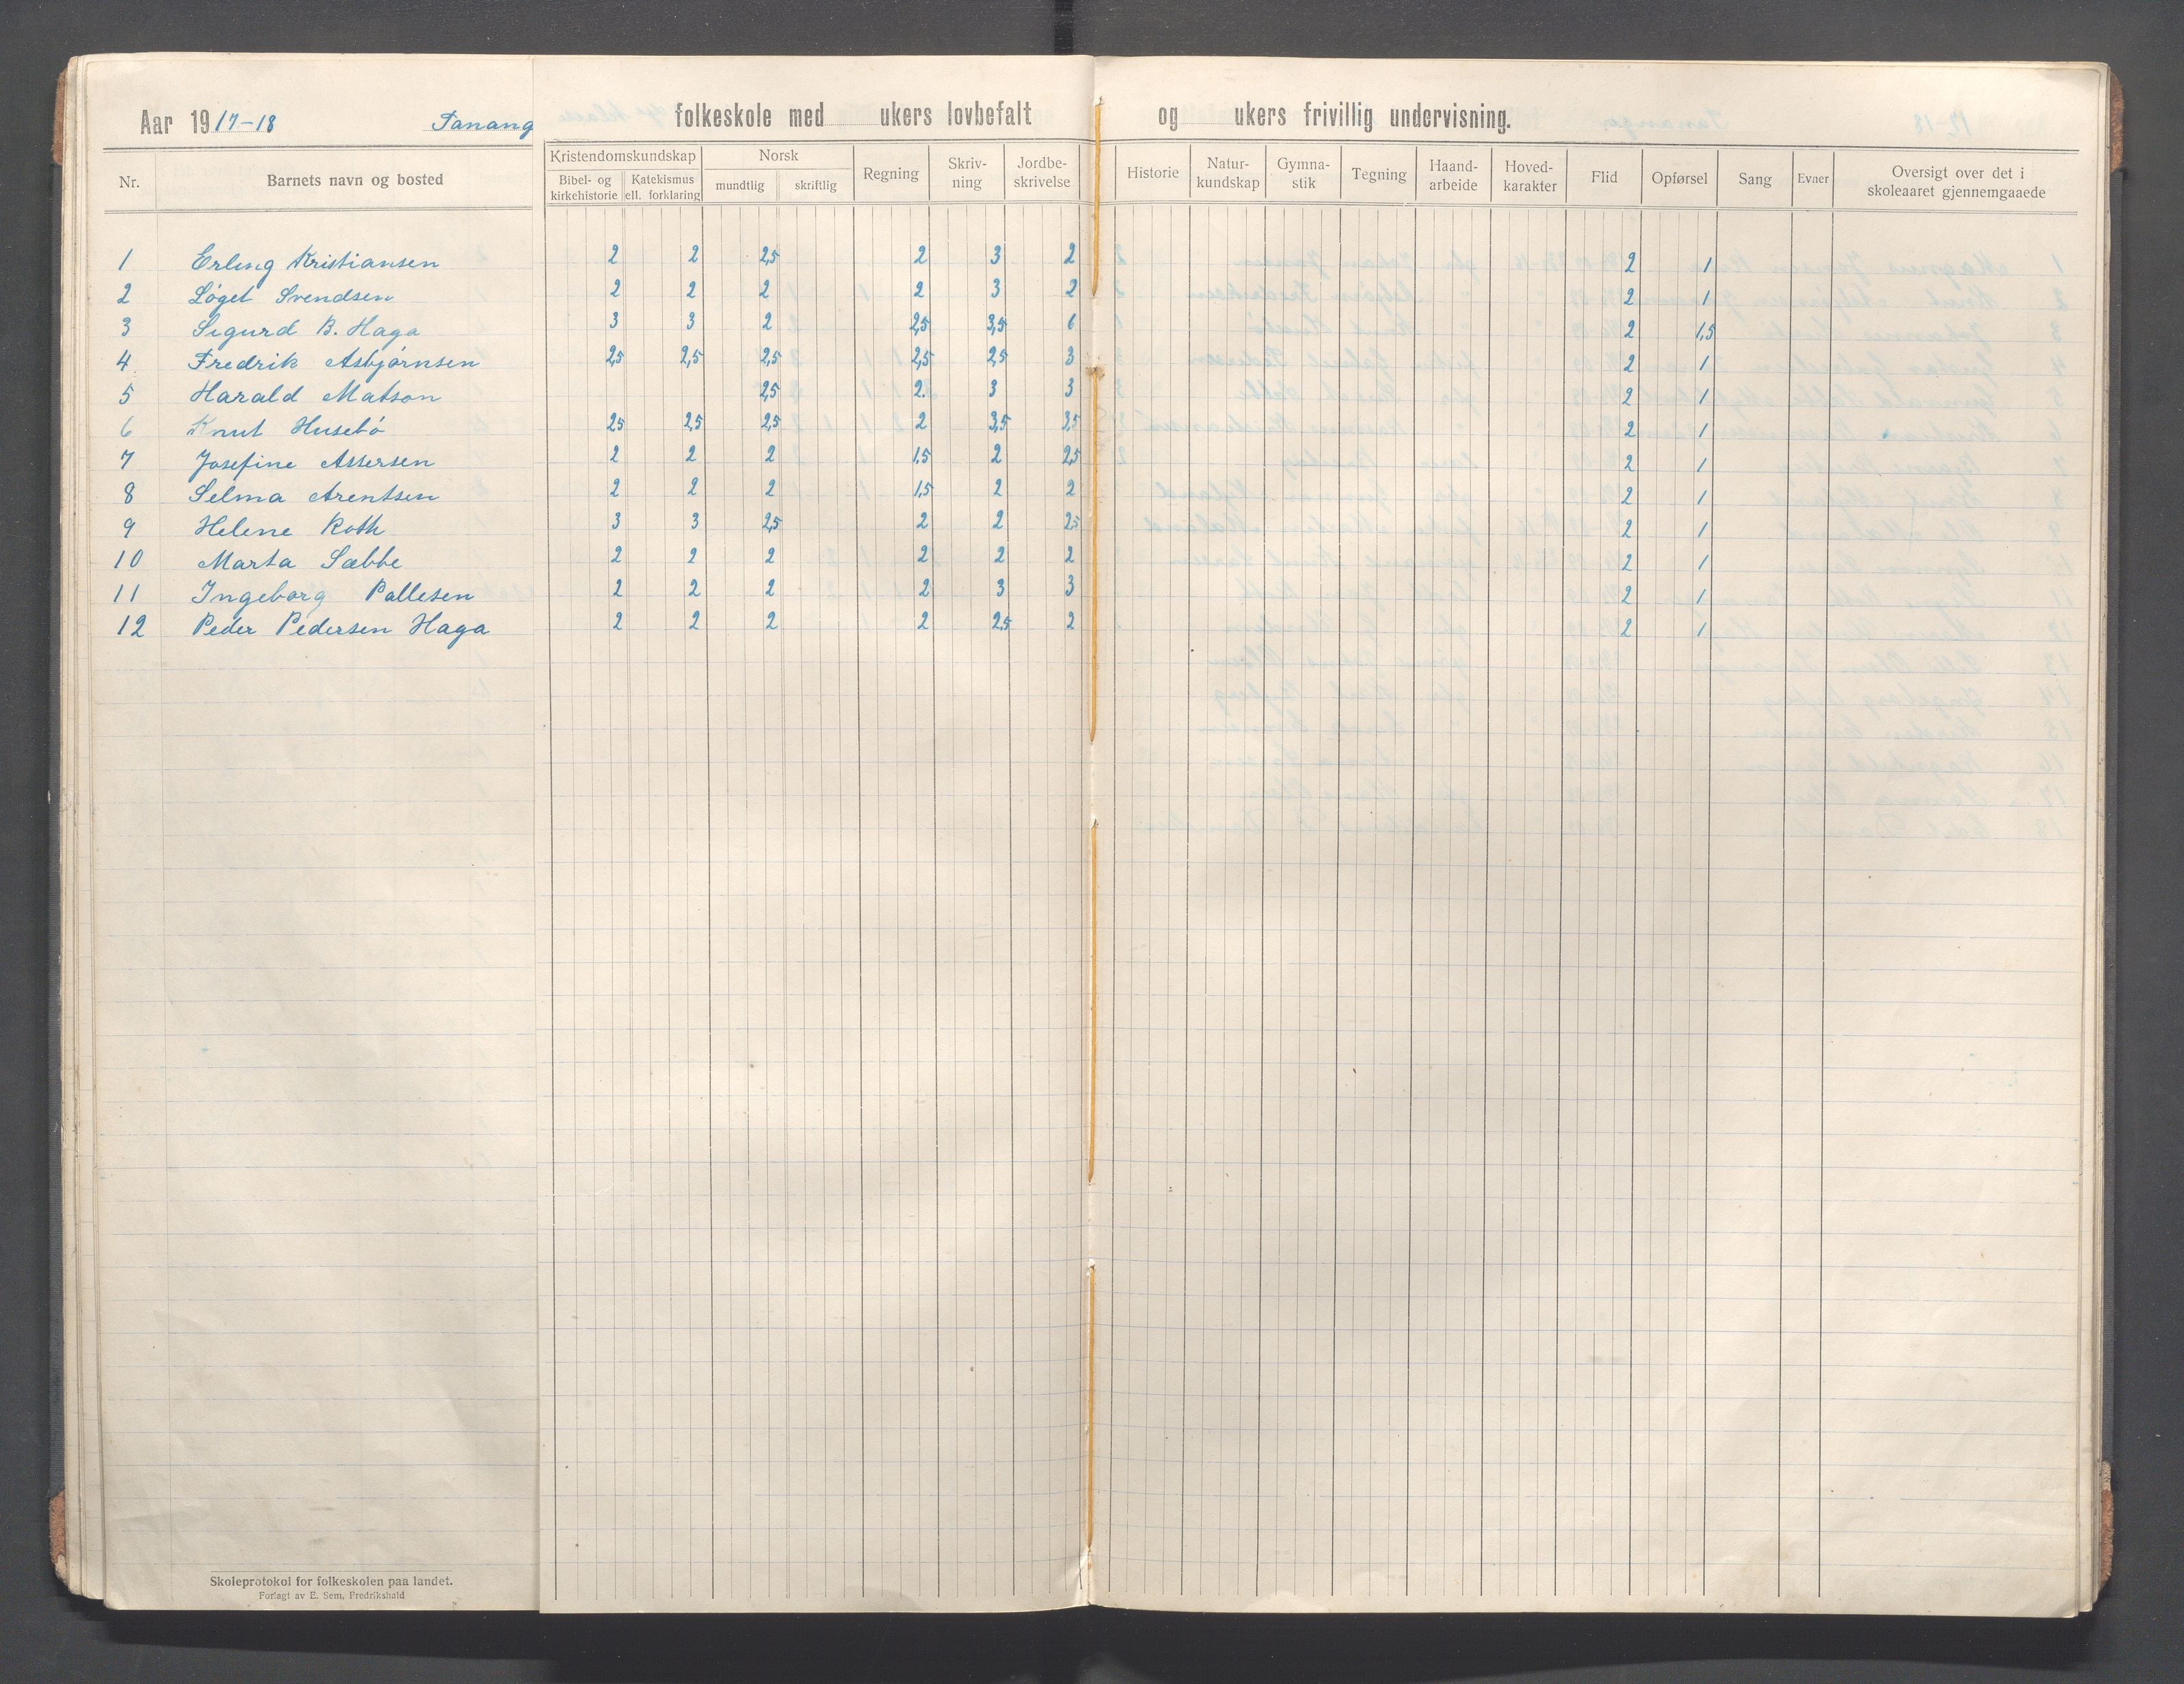 Aar 1917-18 Tanang folkeskole med ukers lovbefalt og ukers frivillig undervisning.
Nr. Barnets navn og bosted Kristendomskundskap Bibel- og kirkehistorie Katekismus ell. forklaring Norsk mundtlig skriftlig Regning Skriv-ning Jordbe-skrivelse Historie Natur-kundskap Gymna-stik Tegning Haand-arbeide Hoved-karakter Flid Opførsel Sang Evner Oversigt over det i skoleaaret gjennemgaaede
1 Erling Kristiansen 2 2 2,5 2 3 2 2 1
2 Löget Svendsen 2 2 2 2 3 2 2 1
3 Sigurd B. Haga 3 3 2 2,5 3,5 6 2 1,5
4 Fredrik Asbjørnsen 2,5 2,5 2,5 2,5 2,5 3 2 1
5 Harald Matson 2,5 2. 3 3 2 1
6 Knut Husebö 2,5 2,5 2,5 2 3,5 3,5 2 1
7 Josefine Assersen 2 2 2 1,5 2 2,5 2 1
8 Selma Arentsen 2 2 2 1,5 2 2 2 1
9 Helene Roth 3 3 2,5 2 2 2,5 2 1
10 Marta Sæbbe 2 2 2 2 2 2 2 1
11 Ingeborg Pallesen 2 2 2 2 3 3 2 1
12 Peder Pedersen Haga 2 2 2 2 2,5 2 2 1
Skoleprotokol for folkeskolen paa landet.
Forlagt av E. Sem, Fredrikshald